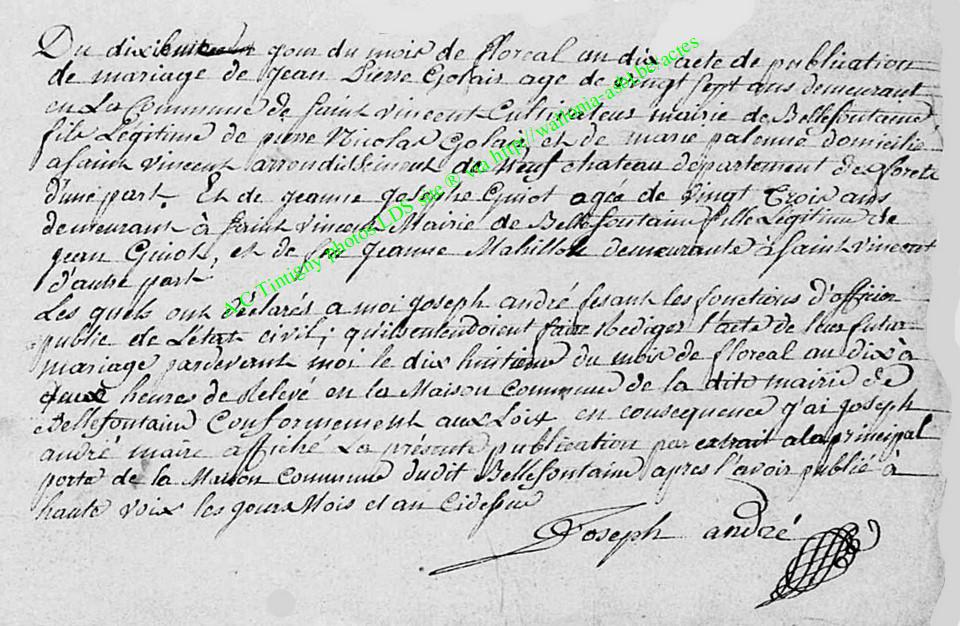 Du dixhuit jour du mois de floreal an dix acte de publication
de mariage de jean Pierre Golais age de vingt sept ans demeurant
en La Commune de saint vincent Cultivateur mairie de Bellefontaine
fils Légitime de pierre Nicolas Golais et de marie palenne domicilié
a saint vincent arrondissement de Neuf chateau departement des forets
d'une part. Et de jeanne josephe Guiot agée de vingt Trois ans
demeurant à saint vincent Mairie de Bellefontaine fille Légitime de
jean Guiot, et de jeanne Mahillot demeurante à saint vincent
d'autre part
Les quels ont déclarés a moi joseph andré fesant les fonctions d'officier
public de L'état civil; qu'ils entendoient faire Rediger l'acte de leur futur
mariage pardevant moi le dix huitieme du mois de floreal an dix à
deux heures de Relevé en la Maison Commune de la dite mairie de
Bellefontaine Conformement aux Loix en consequence j'ai joseph
andré maire affiché La présente publication par extrait a la principal
porte de la Maison Commune dudit Bellefontaine apres l'avoir publié à
haute voix les jours Mois et an Cidessus
Joseph andré
A.C Tintigny photos LDS site ® via http://wallonia-asbl.be/actes